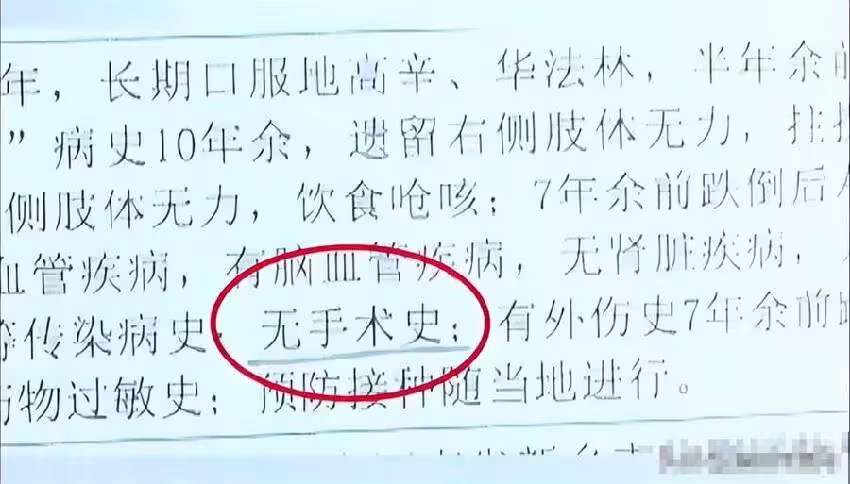 年，长期口服地高辛、华法林，半年余前
”病史10年余，遗留右侧肢体无力，拄拐
侧肢体无力，饮食呛咳；7年余前跌倒后
血管疾病，有脑血管疾病，无肾脏疾病，
等传染病史，无手术史；有外伤史7年余前跌
药物过敏史；预防接种随当地进行。